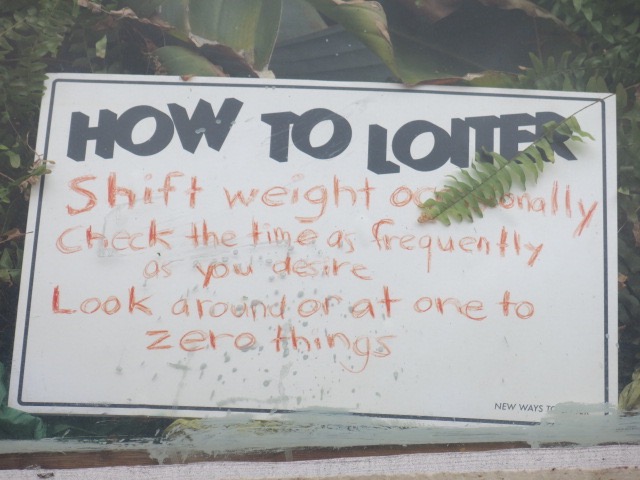 HOW TO LOITER
Shift weight occasionally
Check the time as frequently
as you desire
Look around or at one to
zero things
NEW WAYS